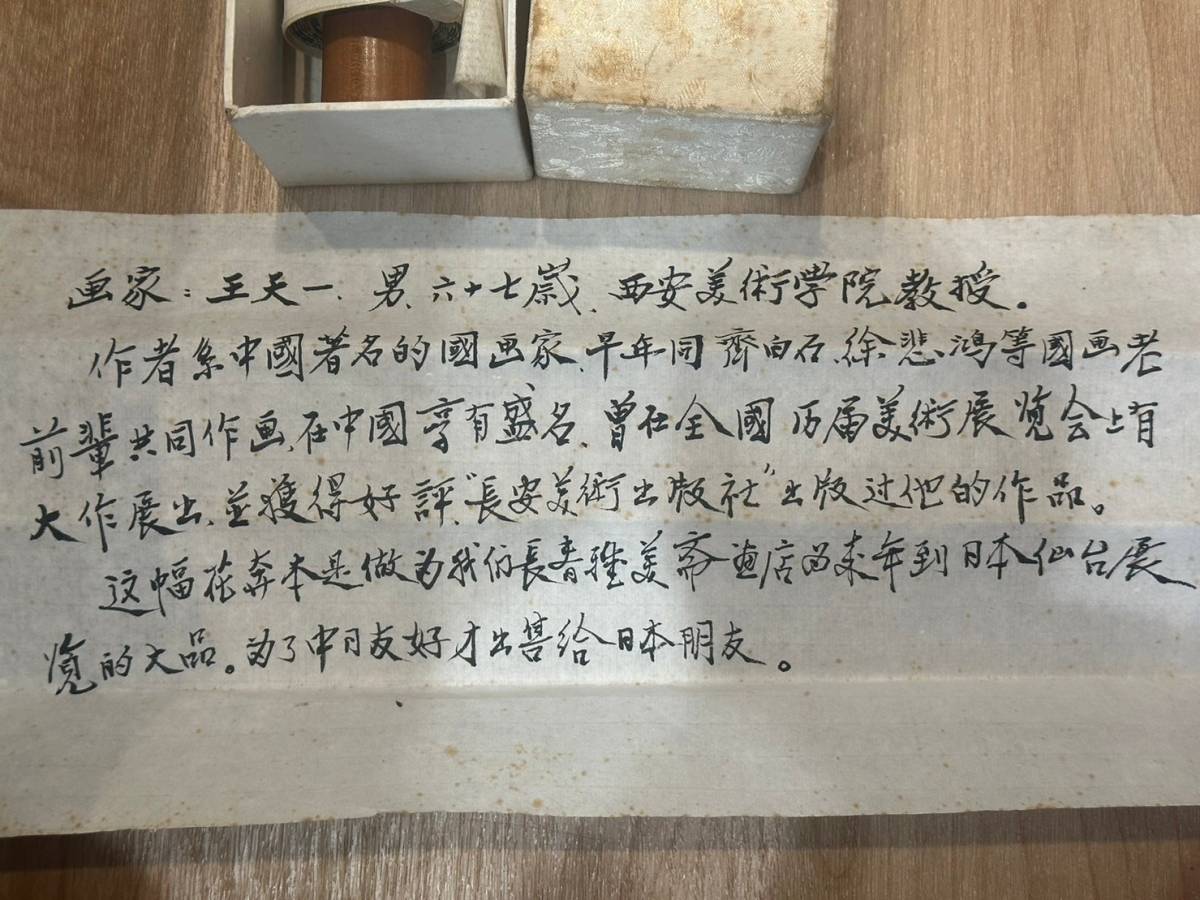 画家：王天一、男、六十七歳、西安美術学院教授。
作者系中國著名的國画家、早年同齊白石、徐悲鴻等國画老
前輩共同作画、在中國享有盛名、曽在全國历届美術展览会上有
大作展出、並獲得好評、“長安美術出版社”出版过他的作品。
这幅花奔本是做为我们長春雅美斎画店留来年到日本仙台展
覧的大品。为了中日友好才出售给日本朋友。